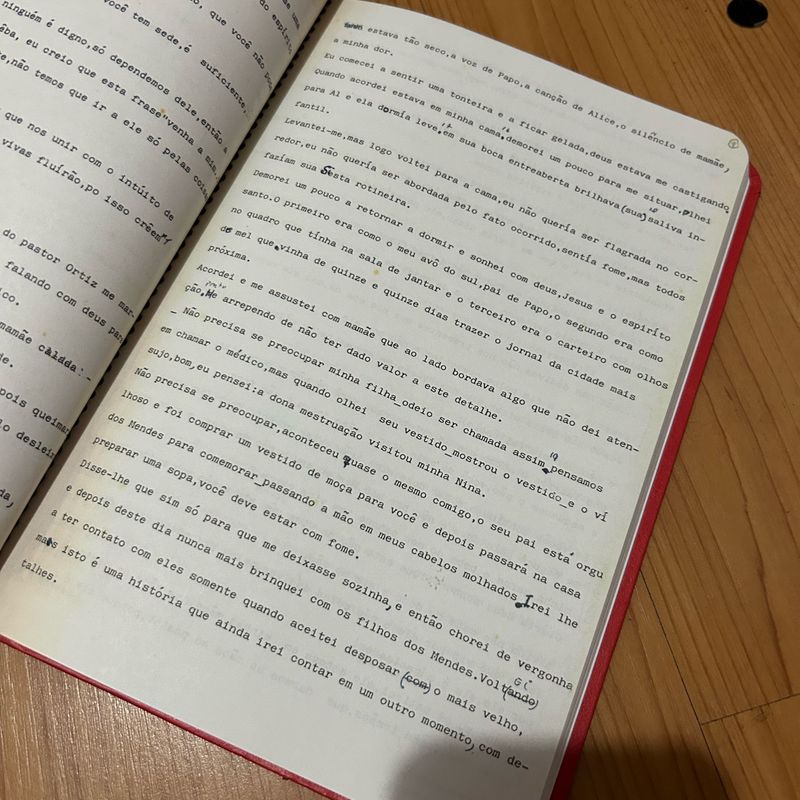 uma
do espírito
que você não pod
você tem sede,é suficiente,
ninguém é digno,só dependemos dele,então a
eu creio que esta frase"venha a mim,
não temos que ir a ele só pelas coisa
que nos unir com o intúito de
vivas fluírão,po isso crêem"
do pastor Ortiz me mar-
falando com deus par
ico.
mamãe calada:-
de.
pois queimar
lo deslei
da,
estava tão seco,a voz de Papo,a canção de Alice,o silêncio de mamãe,
a minha dor.
Eu comecei a sentir uma tonteira e a ficar gelada,deus estava me castigando
Quando acordei estava em minha cama,demorei um pouco para me situar.olhei
para Al e ela dormia leve,em sua boca entreaberta brilhava(sua)saliva in-
fantil.
Levantei-me,mas logo voltei para a cama,eu não queria ser flagrada no cor-
redor,eu não queria ser abordada pelo fato ocorrido,sentia fome,mas todos
faziam sua Sesta rotineira.
Demorei um pouco a retornar a dormir e sonhei com deus,Jesus e o espirito
santo.O primeiro era como o meu avô do sul,pai de Papo,o segundo era como
no quadro que tinha na sala de jantar e o terceiro era o carteiro com olhos
de mel que vinha de quinze e quinze dias trazer o jornal da cidade mais
próxima.
Acordei e me assustei com mamãe que ao lado bordava algo que não dei aten-
ção,Me arrependo de não ter dado valor a este detalhe.
_ Não precisa se preocupar minha filha_odeio ser chamada assim,pensamos
em chamar o médico,mas quando olhei seu vestido_mostrou o vestido_e o vi
sujo,bom,eu pensei:a dona mestruação visitou minha Nina.
Não precisa se preocupar,aconteceu quase o mesmo comigo,o seu pai está orgu
lhoso e foi comprar um vestido de moça para você e depois passará na casa
dos Mendes para comemorar_passando a mão em meus cabelos molhados.Irei lhe
preparar uma sopa,você deve estar com fome.
Disse-lhe que sim só para que me deixasse sozinha,e então chorei de vergonha
e depois deste dia nunca mais brinquei com os filhos dos Mendes.Volt(ando)
a ter contato com eles somente quando aceitei desposar (com) o mais velho,
mais isto é uma história que ainda irei contar em um outro momento,com de-
talhes.